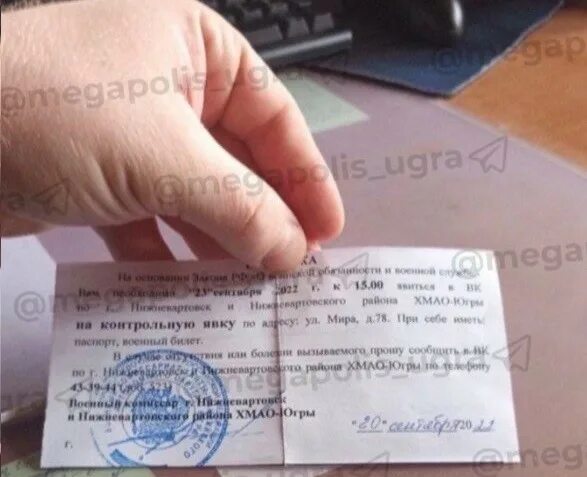 @megapolis_ugra
@megapolis_ugra
На основании Закона РФ «О воинской обязанности и военной службе»
Вам необходимо "23" сентября 2022 г. к 15.00 явиться в ВК
по г. Нижневартовск и Нижневартовского района ХМАО-Югры
на контрольную явку по адресу: ул. Мира, д.78. При себе иметь:
паспорт, военный билет.
В случае отсутствия или болезни вызываемого прошу сообщить в ВК
по г. Нижневартовск и Нижневартовского района ХМАО-Югры по телефону
43-39-44
Военный комиссар г. Нижневартовск
и Нижневартовского района ХМАО-Югры
"20" сентября 2022
г.
@megapolis